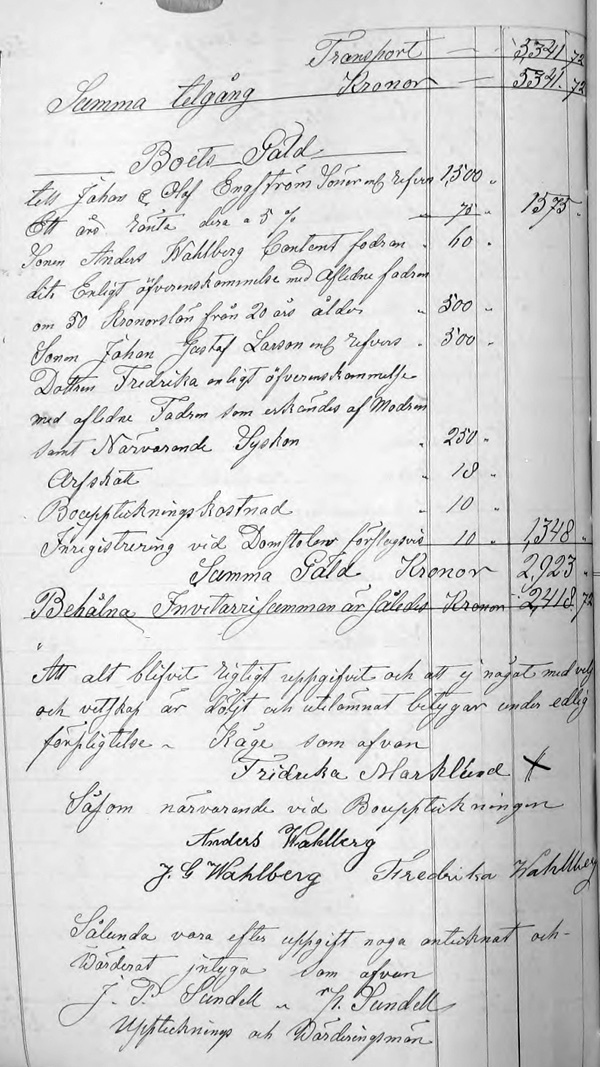 Transport — 5,341 72
Summa tillgång Kronor 5341. 72
Boets Gäld
till Johan & Olof Engström Söner enl Refvers 1,500 "
Ett års ränta dera a 5 % 75 " 1575 "
Sonen Anders Wahlberg Content fodran " 60 "
dito Enligt öfverenskommelse med aflidne fadren
om 50 Kronorslön från 20 års ålder " 500 "
Sonen Johan Gustaf Larson enl Refvers " 500 "
Dottren Fredrika enligt öfverenskommelse
med aflidne Fadren som erkändes af Modren
samt Närvarande Syskon " 250 "
Arfskatt " 18 "
Bouppteckningskostnad " 10 "
Inregistrering vid Domstolen förslagsvis 10 " 1,348 "
Summa Gäld Kronor 2,923 "
Behålna Inventarrisumman är således Kronor 2,418 72
Att alt blifvit rigtigt uppgifvit och att ej något med vett
och vetskap är döljt och utelämnat betygar under edlig
förpligtelse " Kåge som ofvan
Fridrika Marklund X
Såsom närvarande vid Bouppteckningen
Anders Wahlberg
J. G Wahlberg Fredrika Wahlberg
Sålunda vara efter uppgift noga antecknat och
Värderat intyga som ofvan
J. P. Sundell " N. Sundell
Upptecknings och Värderingsmän